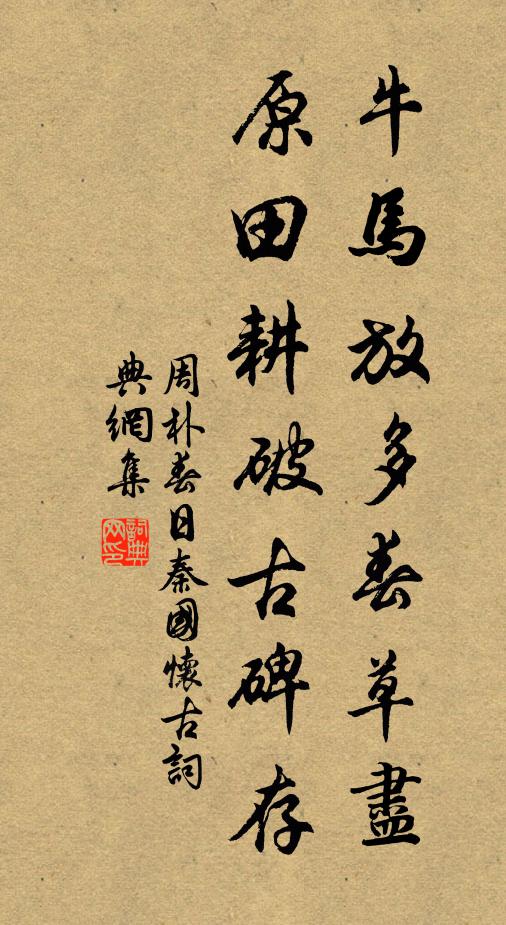 牛馬放多春草盡
原田耕破古碑存
周朴春日秦國懷古詞
典網集
詞典網印